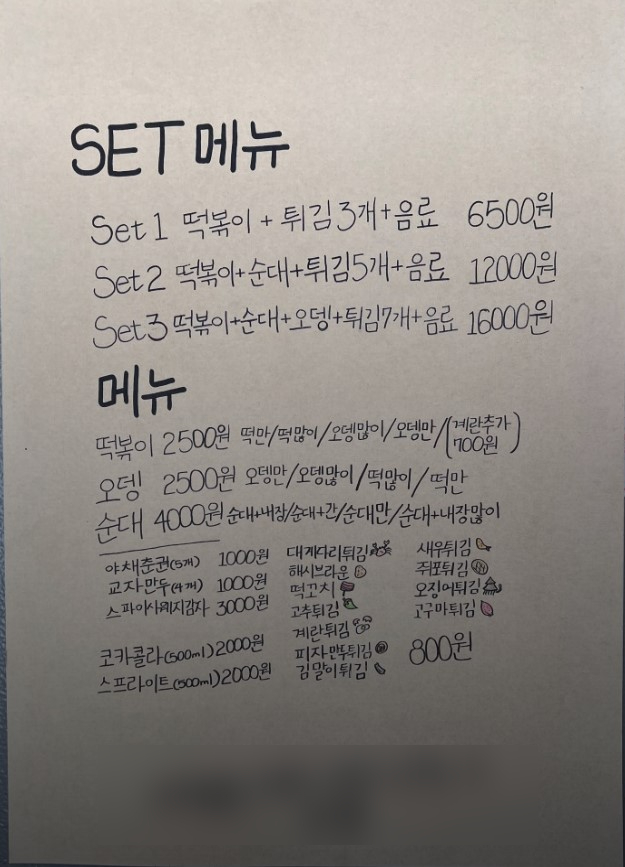 SET 메뉴
Set 1 떡볶이 + 튀김 3개 + 음료 6500원
Set 2 떡볶이+순대+튀김5개+음료 12000원
Set 3 떡볶이+순대+오뎅+튀김7개+음료 16000원
메뉴
떡볶이 2500원 떡만/떡많이/오뎅많이/오뎅만/(계란추가 700원)
오뎅 2500원 오뎅만/오뎅많이/떡많이/떡만
순대 4000원 순대+내장/순대+간/순대만/순대+내장많이
야채춘권(5개) 1000원
교자만두(4개) 1000원
스파이사웨지감자 3000원
코카콜라(500ml) 2000원
스프라이트(500ml) 2000원
대게다리튀김
해시브라운
떡꼬치
고추튀김
계란튀김
피자만두튀김
김말이튀김
새우튀김
쥐포튀김
오징어튀김
고구마튀김
800원